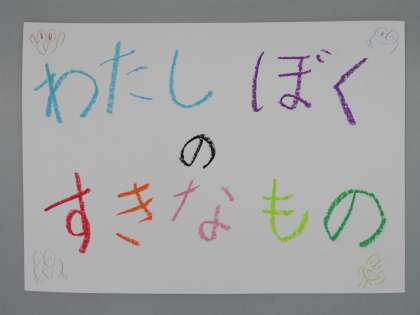 わたし ぼく
の
すきなもの